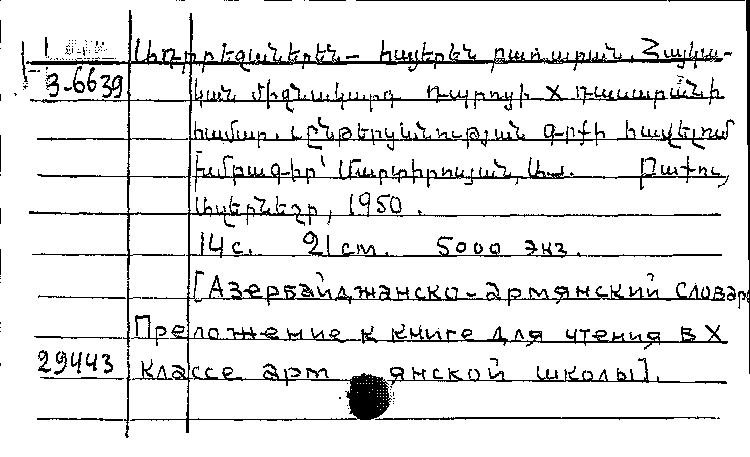 Ադրբեջաներեն – հայերեն բառարան. Հայկա-
3-6639 կան միջնակարգ դպրոցի X դասարանի
համար. Ընթերցանության գրքի հավելում
խմբագիր՝ Մարտիրոսյան, Բաքու,
Ազերնեշր, 1950.
14 с. 21 см. 5000 экз.
[Азербайджанско-армянский словарь
Преложение к книге для чтения в X
29443 классе арм янской школы].